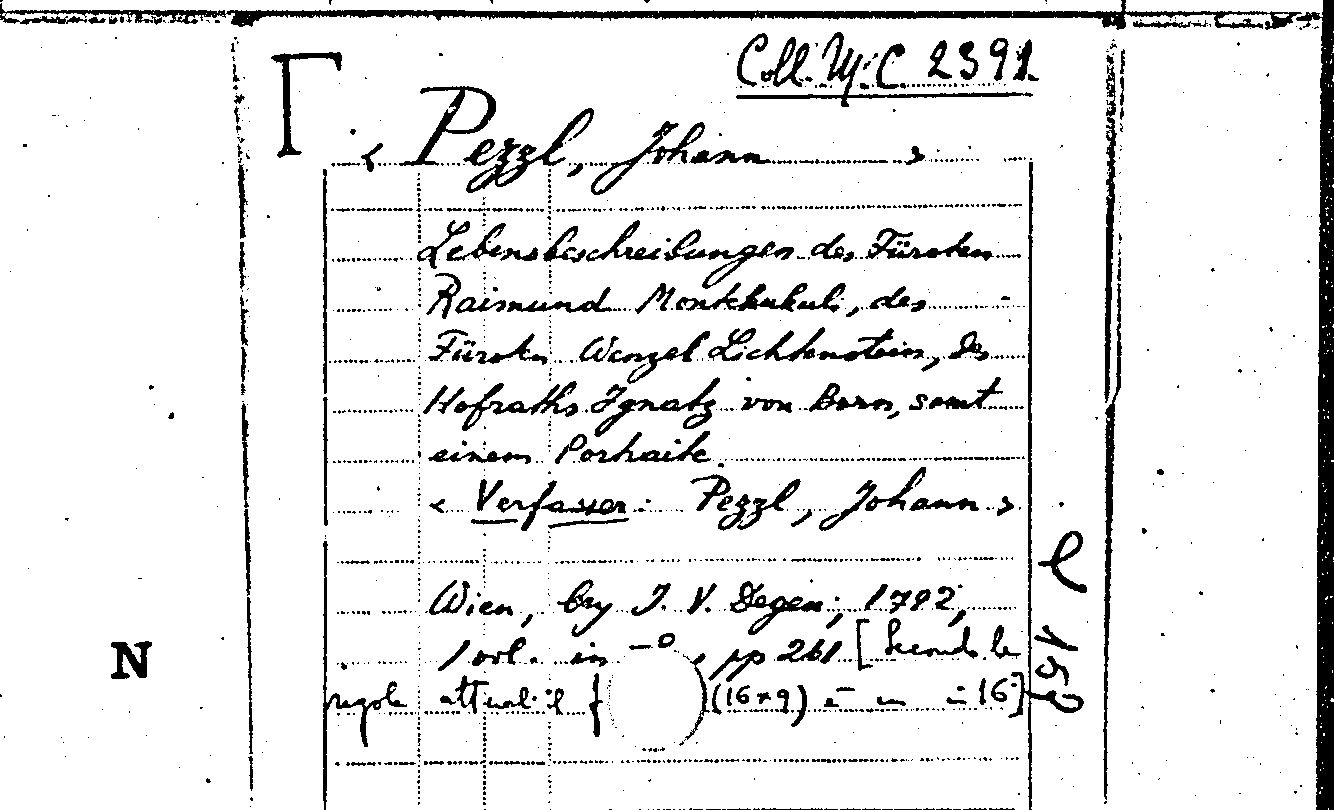 Coll. M. C. 2391.
< Pezzl, Johann >
Lebensbeschreibungen des Fürsten
Raimund Montekukuli, des
Fürsten Wenzel Lichtenstein, des
Hofraths Ignatz von Born, samt
einem Portraite.
< Verfasser: Pezzl, Johann >
Wien, bey J. V. Degen, 1792,
1 vol. in -°, pp 261 [secondo le
regole attuali il (16×9) è un in 16]
N